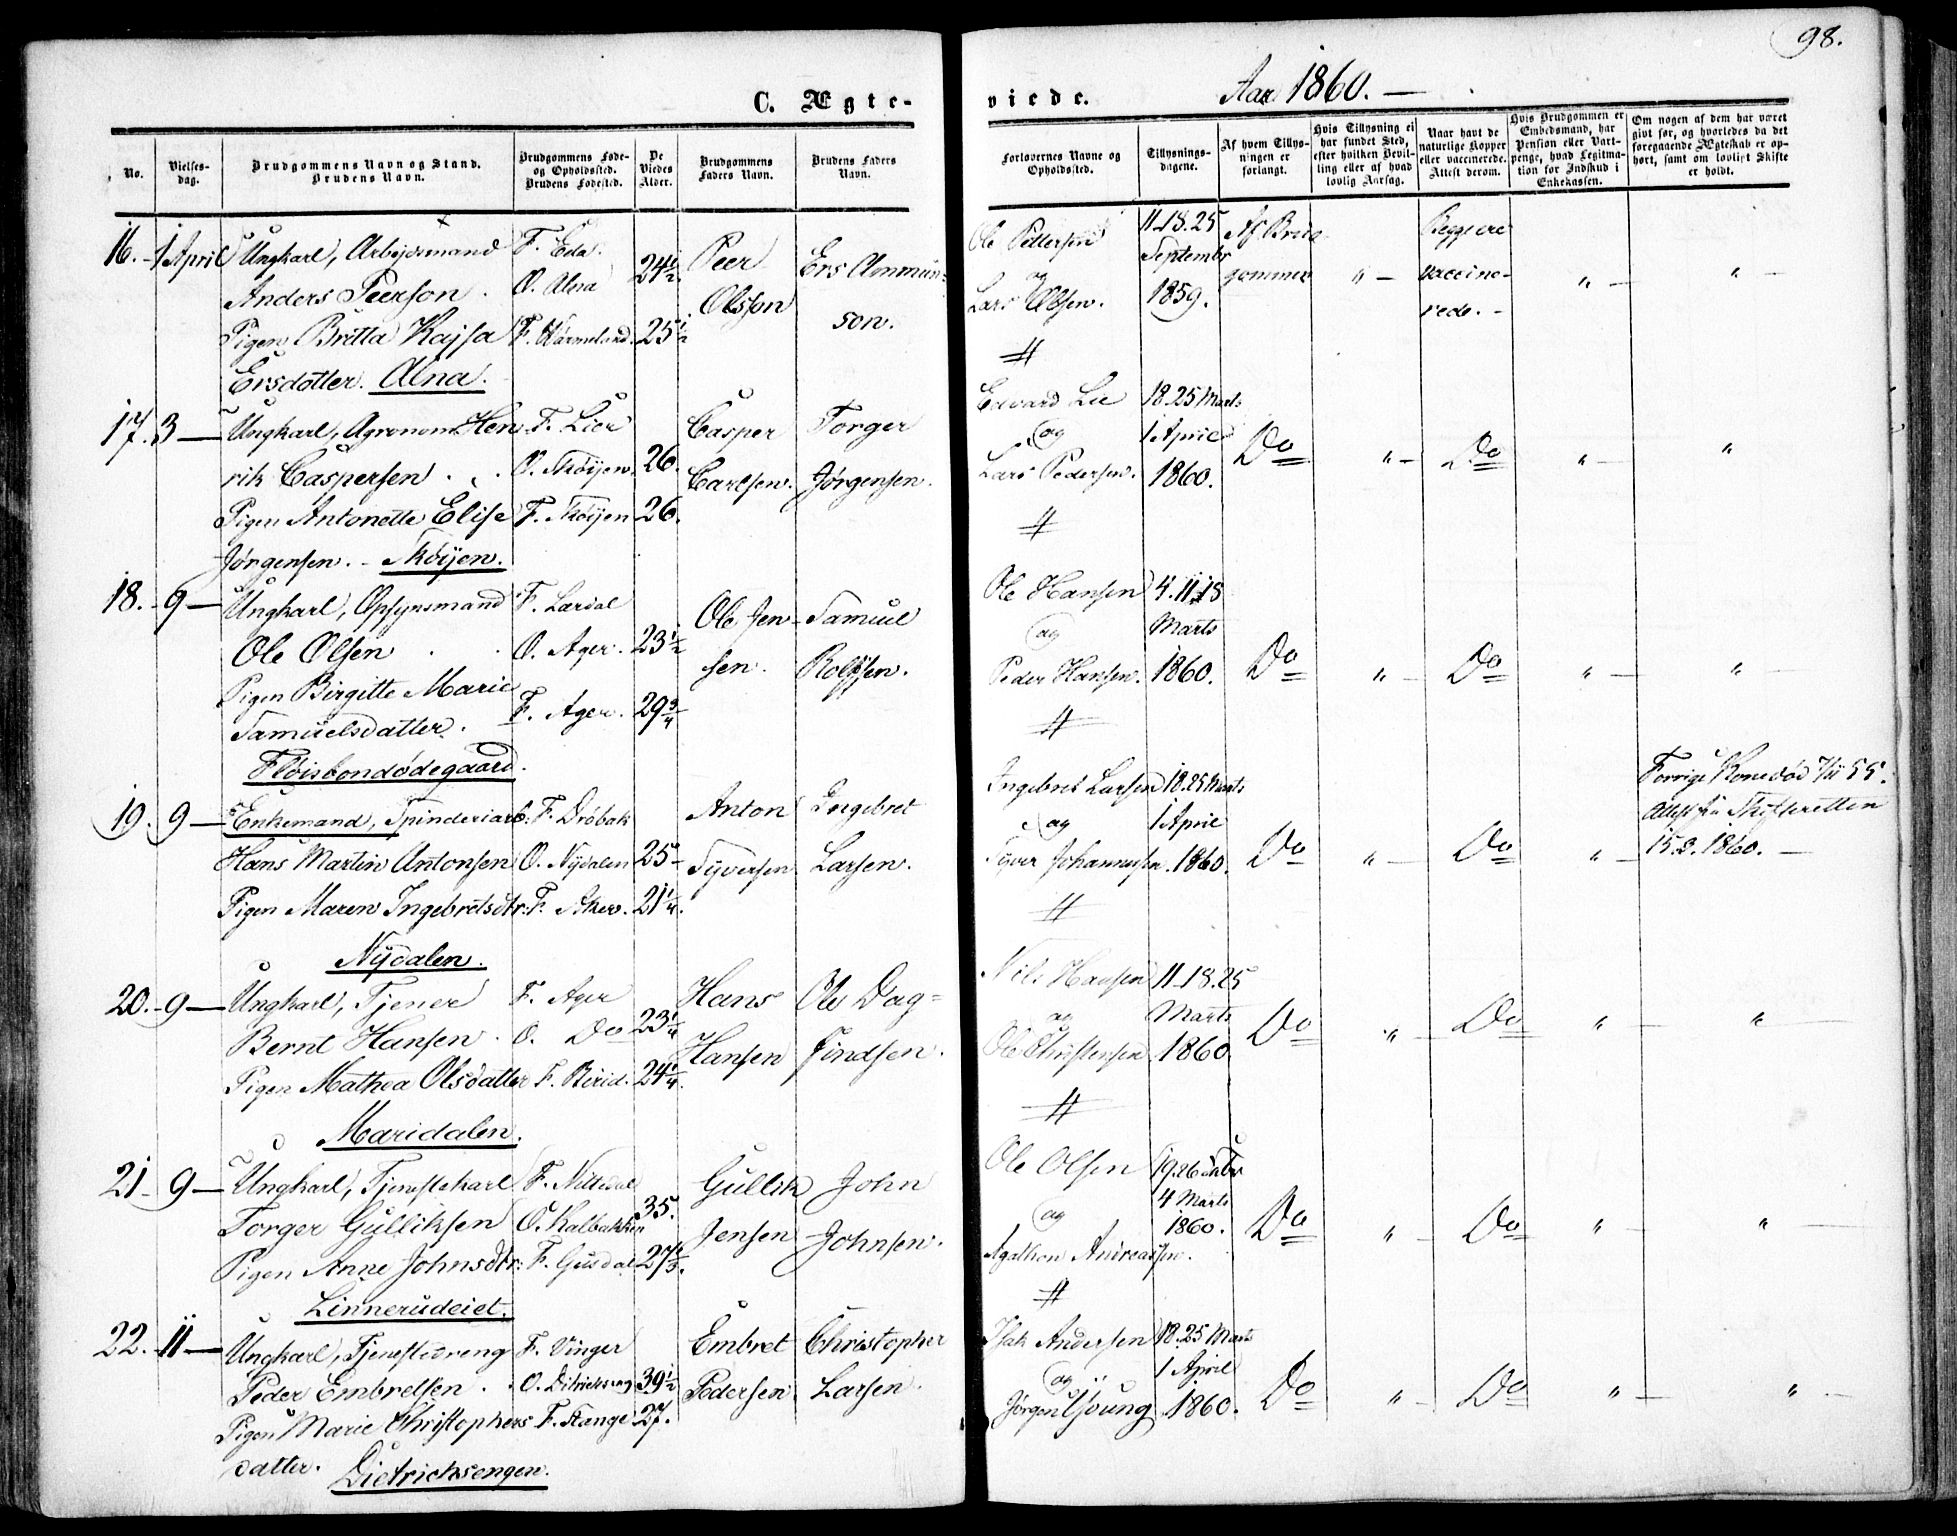 98.
C. Ægte-
viede.
Aar 1860. —
No.
Vielses-
dag.
Brudgommens Navn og Stand.
Brudens Navn.
Brudgommens Føde-
og Opholdssted.
Brudens Fødested.
De
Viedes
Alder.
Brudgommens
Faders Navn.
Brudens Faders
Navn.
Forlovernes Navne og
Opholdssted.
Tillysnings-
dagene.
Af hvem Tillys-
ningen er
forlangt.
Hvis Tillysning ei
har fundet Sted,
efter hvilken Bevil-
ling eller af hvad
lovlig Aarsag.
Naar havt de
naturlige Kopper
eller vaccinerede.
Attest derom.
Hvis Brudgommen er
Embedsmand, har
Pension eller Vart-
penge, hvad Legitima-
tion for Indskud i
Enkekassen.
Om nogen af dem har været
givt før, og hvorledes da det
foregaaende Ægteskab er op-
hørt, samt om lovligt Skifte
er holdt.
16. - 1 April Ungkarl, Arbejdsmand F. Eda.
Anders Peerson. O. Alna 24½.
Pigen Britta Kajsa F. Wärmeland. 25½
Ersdotter. Alna.
Peer
Olsson
Ers Ammun=
son.
Ole Pettersen
og
Lars Olsen.
11. 18. 25
Septembr
1859.
Af Brud-
gommen
" -
Begge ere
vaccine-
rede. -
" -
" -
17. 3 — Ungkarl, Agronom Hen- F. Lier
rik Caspersen O. Skøijen. 26.
Pigen Antonette Elise F. Skøijen 26.
Jørgensen. - Skøijen.
Casper
Carlsen.
Torger
Jørgensen.
Edvard Lie
og
Lars Pedersen.
18. 25 Marts
1 April
1860.
Do
" -
Do
" -
"
18. - 9 — Ungkarl, Opsynsmand F. Lærdal
Ole Olsen O. Ager. 23½
Pigen Birgitte Marie
Samuelsdatter. F. Ager. 29¾
Fløisbondødegaard.
Ole Jen-
sen.
Samuel
Rolfsen.
Ole Hansen
og
Peder Hansen.
4. 11. 18
Marts
1860.
Do
" -
Do
" -
"
19. 9 — Enkemand, Spinderiarb: F. Drøbak
Hans Martin Antonsen O. Nydalen 25
Pigen Maren Ingebretsdtr: F. Aker. 21¼.
Nydalen.
Anton
Syversen
Ingebret
Larsen.
Ingebret Larsen
og
Syver Johannessen.
18. 25 Marts
1 April
1860.
Do
" -
Do
" -
Forrige Kone død 7/11 55.
Attest fra Skifteretten
15. 3. 1860. —
20. - 9 — Ungkarl, Tjener F. Ager
Bernt Hansen. O. Do 23¼
Pigen Mathea Olsdatter F. Birid. 24¼.
Maridalen.
Hans
Hansen
Ole Dag=
findsen.
Nils Hansen
og
Ole Christensen
11. 18. 25
Marts
1860.
Do
" -
Do
" -
" -
21. 9 — Ungkarl, Tjenestekarl F. Nittedal
Torger Gulliksen O. Kalbakken 35.
Pigen Anne Johnsdtr: F. Gusdal 27⅓.
Linnerudeiet.
Gullik
Jensen
John
Johnsen.
Ole Olsen
og
Agathon Andreassen.
19. 26 Febr
4 Marts
1860.
Do
" -
Do
" -
" -
22. 11 — Ungkarl, Tjenestedreng F. Vinger
Peder Embretsen. O. Ditrichseng 39½
Pigen Marie Christophers F. Stange 27.
datter. Dietrichsengen.
Embret
Pedersen
Christopher
Larsen.
Isak Andersen
og
Jørgen
18. 25 Marts
1 April
1860.
Do
" -
Do
" -
" -